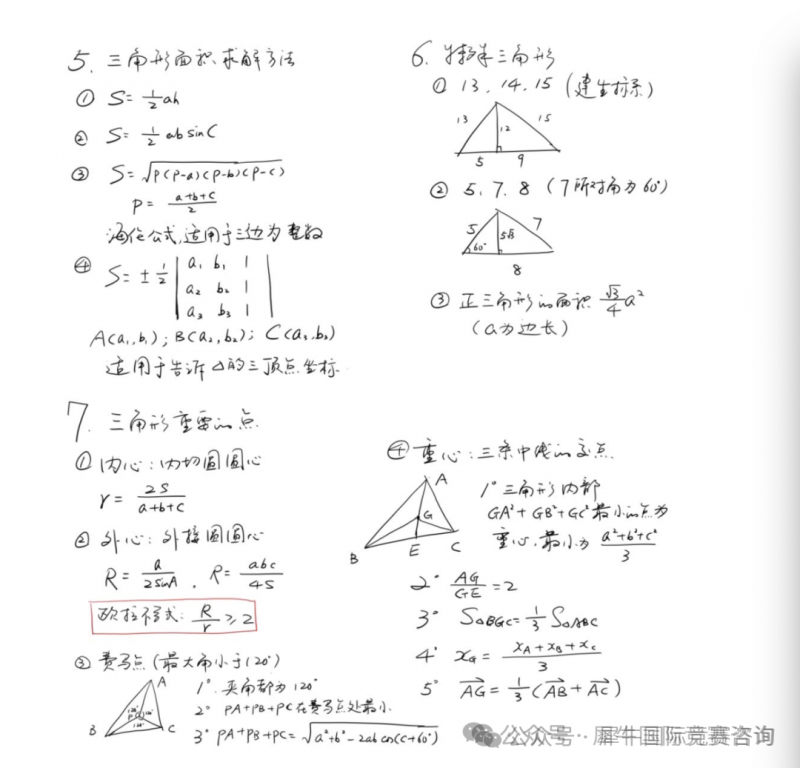 5. 三角形面积求解方法
① S= 1/2 ah
② S= 1/2 ab sinC
③ S= √P(P-a)(P-b)(P-c)
P= a+b+c/2
海伦公式,适用于三边为整数
④ S= ± 1/2 | a₁ b₁ 1 |
| a₂ b₂ 1 |
| a₃ b₃ 1 |
A(a₁,b₁); B(a₂,b₂); C(a₃,b₃)
适用于告诉△的三顶点坐标
6. 特殊三角形
① 13、14、15 (建坐标系)
13 12 15
5 9
② 5、7、8 (7所对角为60°)
5 5√3 7
60°
8
③ 正三角形的面积 √3/4 a²
(a为边长)
7. 三角形重要的点
① 内心:内切圆圆心
r= 2S/a+b+c
② 外心:外接圆圆心
R= a/2sinA , R= abc/4S
欧拉不等式: R/r ≥2
③ 费马点(最大角小于120°)
A
B C
P
120° 120°
120°
1° 夹角都为120°
2° PA+PB+PC在费马点处最小
3° PA+PB+PC= √a²+b²-2ab cos(C+60°)
④ 重心:三条中线的交点
A
G
B E C
1° 三角形内部
GA²+GB²+GC²最小的点为
重心,最小为 a²+b²+c²/3
2° AG/GE =2
3° S△BGC= 1/3 S△ABC
4° x_G = x_A+x_B+x_C/3
5° AG= 1/3 (AB+AC)
公众号·犀牛国际竞赛咨询